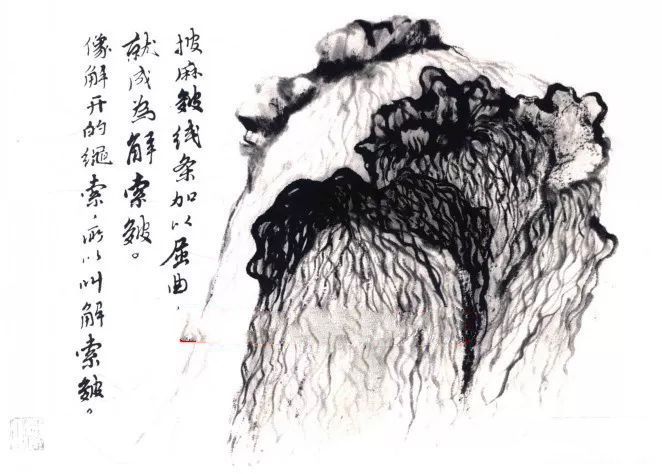 披麻皴线条加以屈曲，
就成为解索皴。
像解开的绳索，所以叫解索皴。